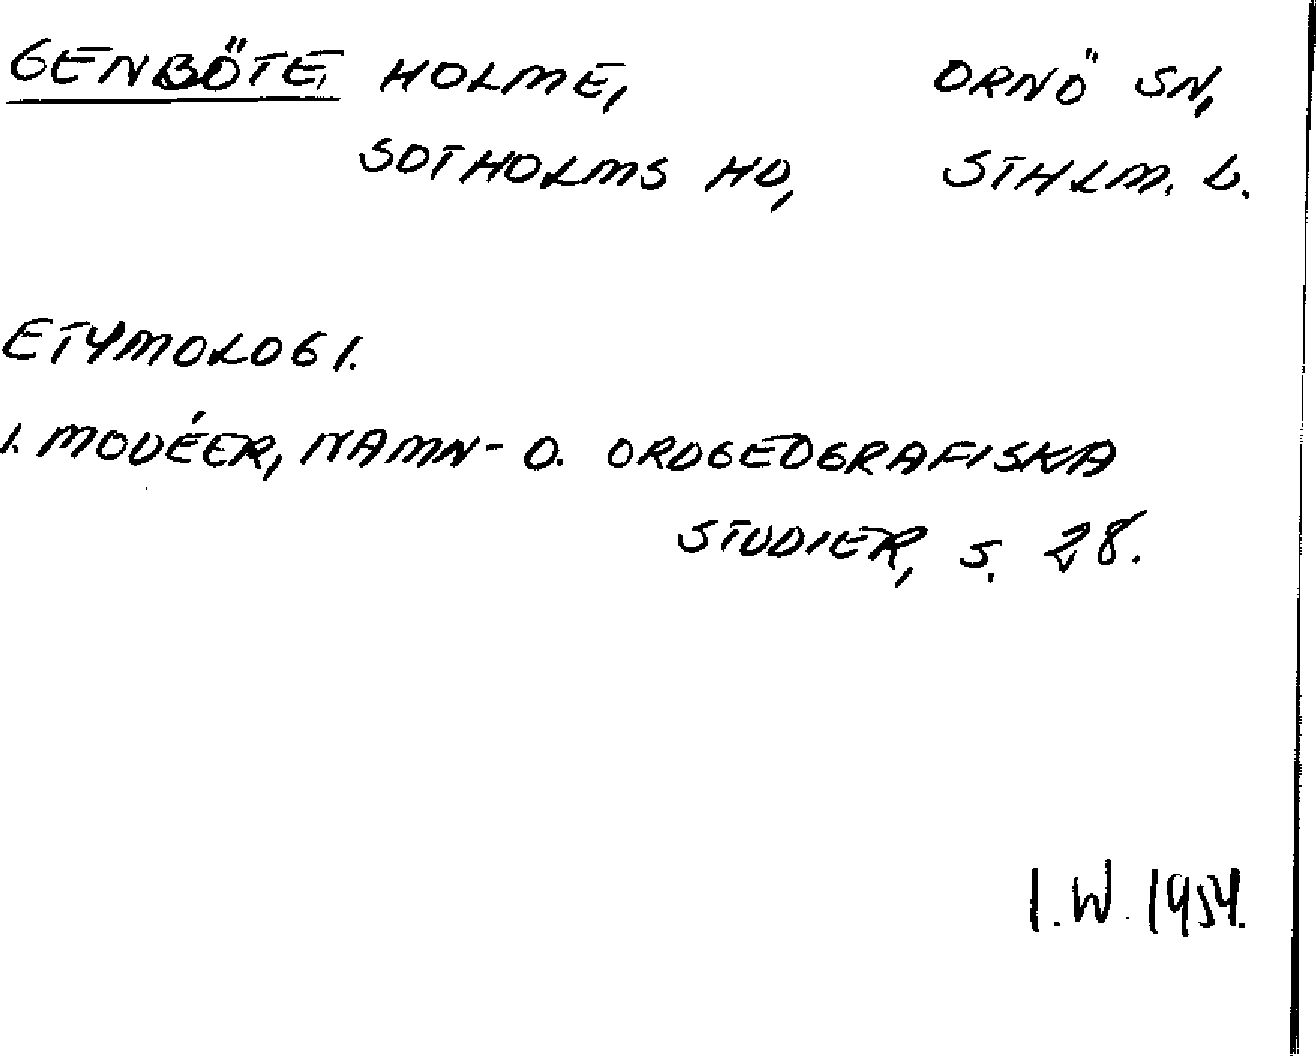 GENBÖTE HOLME, ORNÖ SN,
SOTHOLMS HD, STHLM. L.
ETYMOLOGI.
I. MODÉER, NAMN- O. ORDGEOGRAFISKA
STUDIER, S. 28.
I. W. 1954.